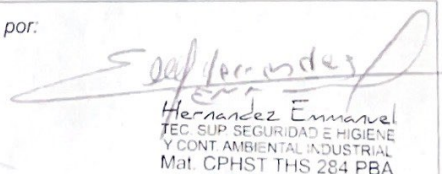 por:
Hernandez Emmanuel
TEC. SUP. SEGURIDAD E HIGIENE
Y CONT. AMBIENTAL INDUSTRIAL
Mat. CPHST THS 284 PBA